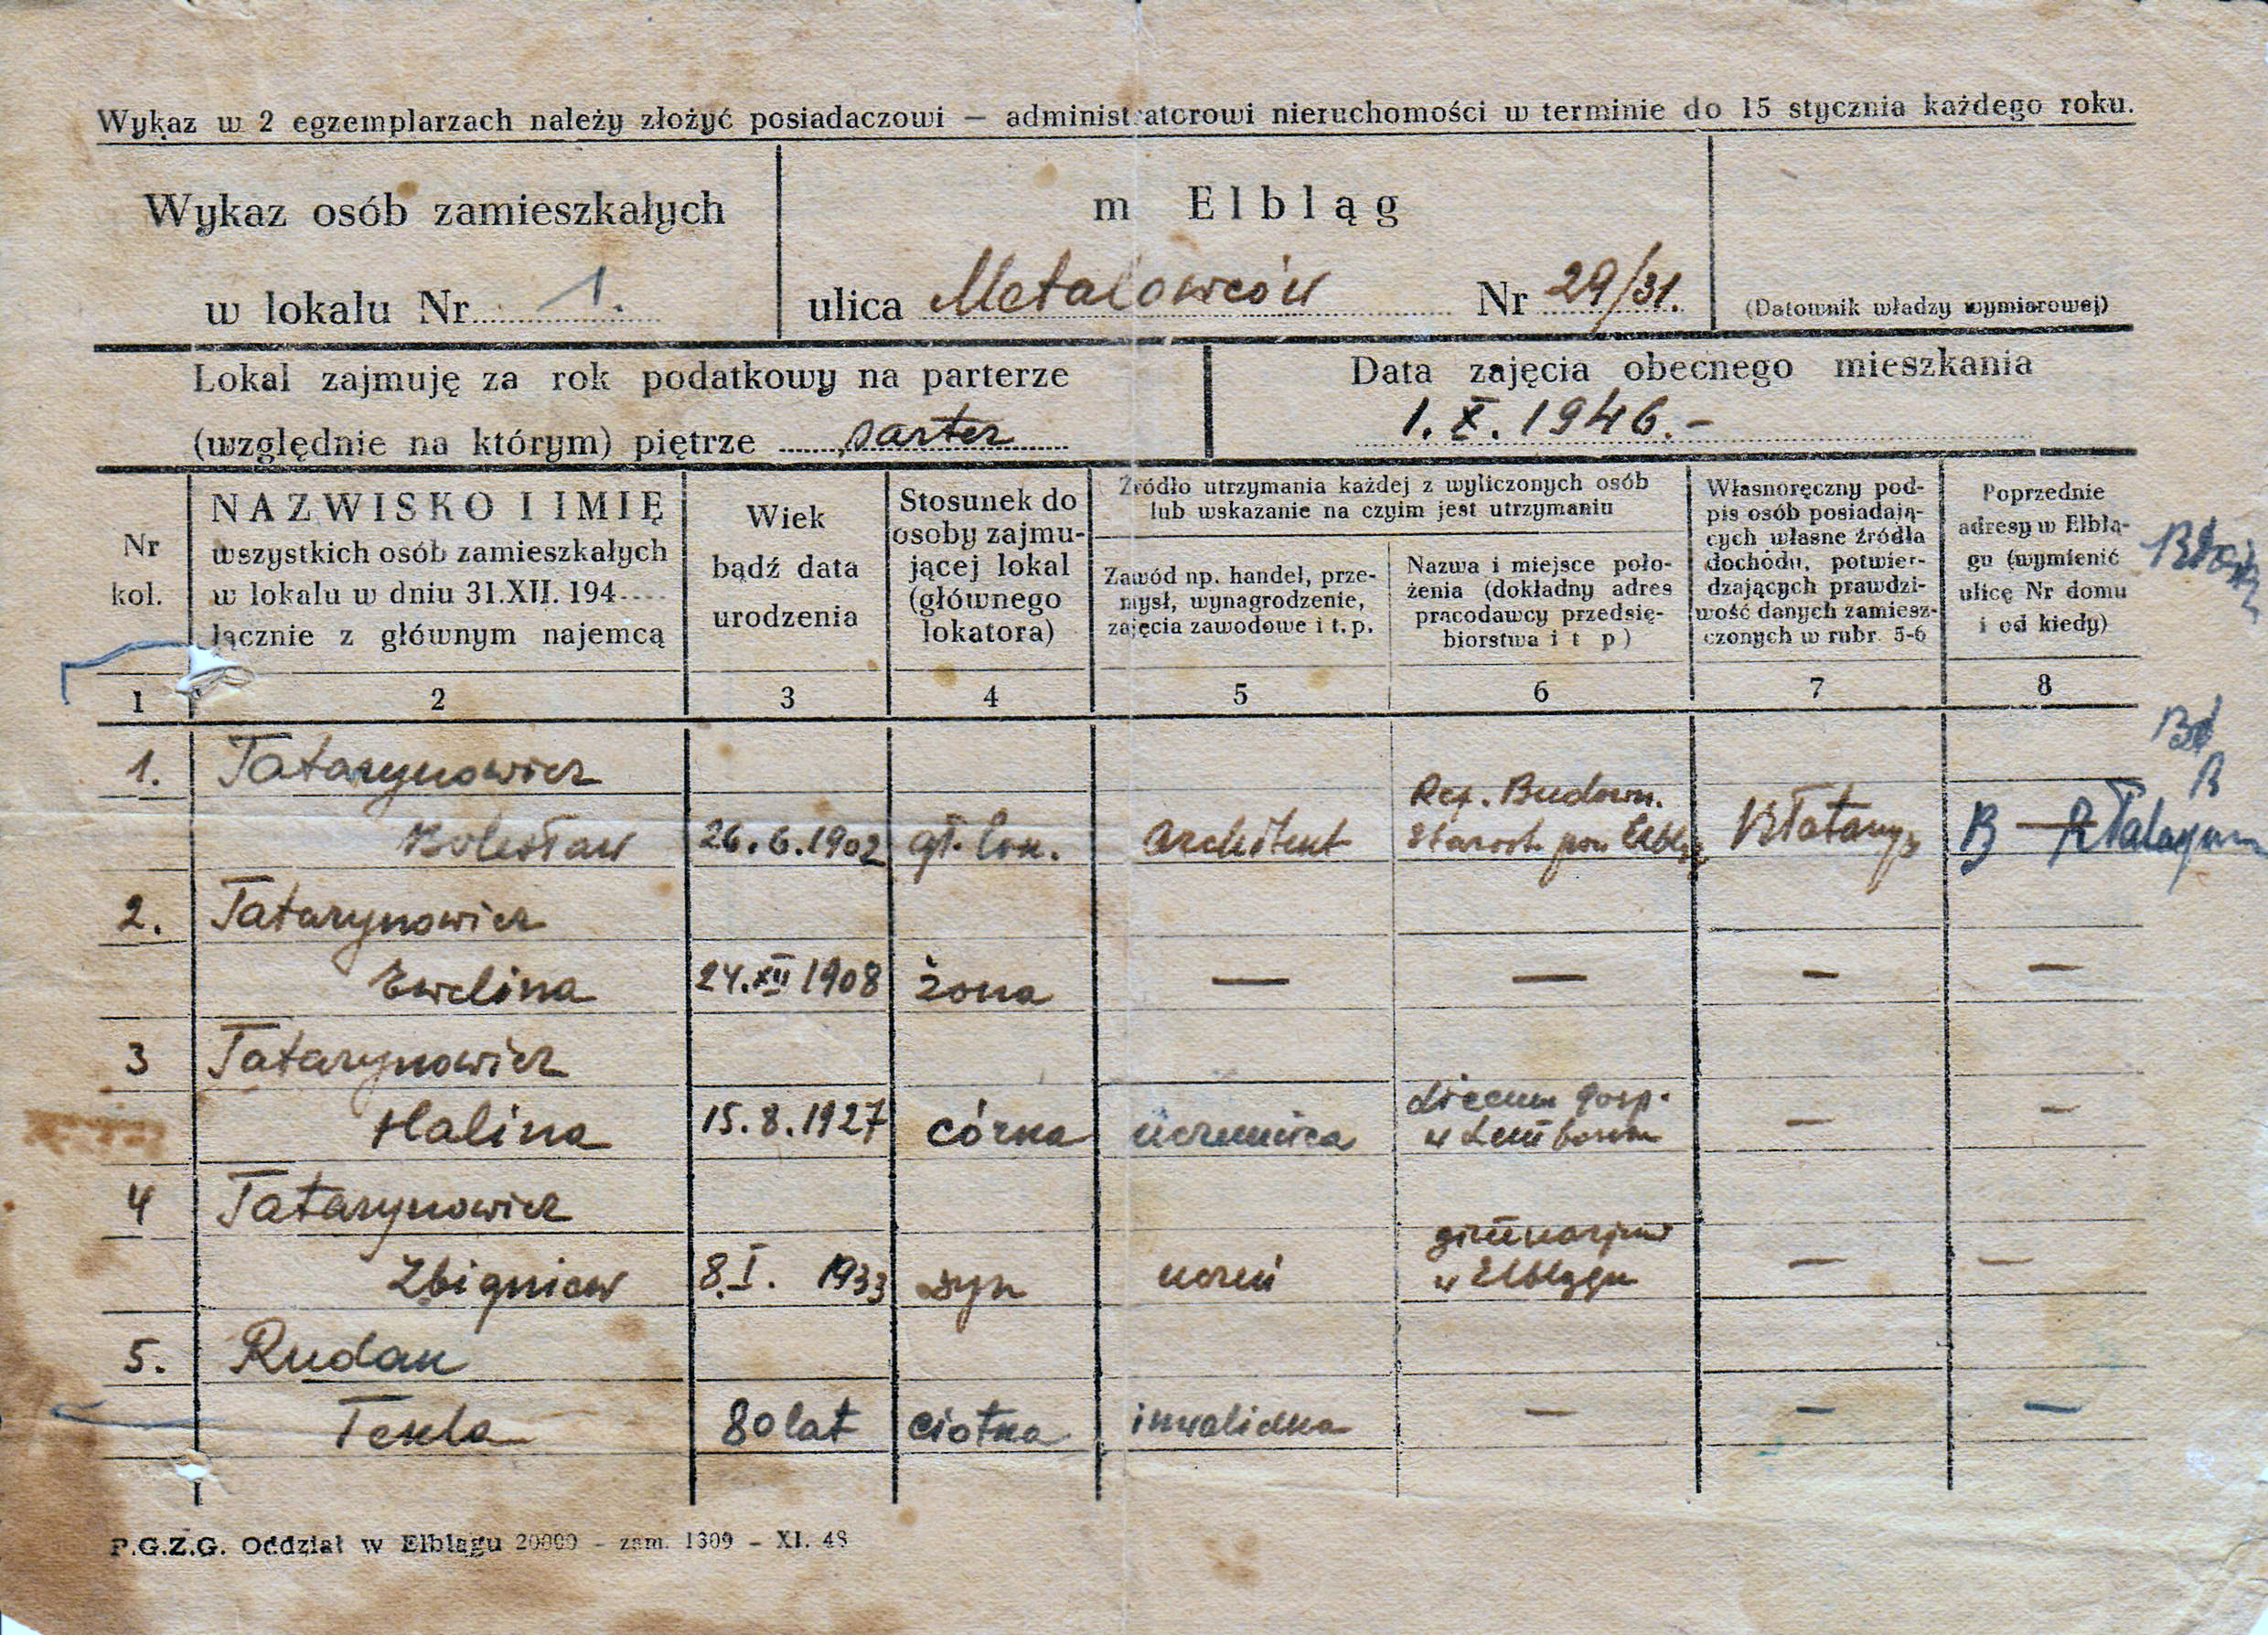 Wykaz w 2 egzemplarzach należy złożyć posiadaczowi — administratorowi nieruchomości w terminie do 15 stycznia każdego roku.
Wykaz osób zamieszkałych
w lokalu Nr 1.
m Elbląg
ulica Metalowców Nr 29/31.
(Datownik władzy wymiarowej)
Lokal zajmuję za rok podatkowy na parterze
(względnie na którym) piętrze parter
Data zajęcia obecnego mieszkania
1. X. 1946.-
Nr
kol.
NAZWISKO I IMIĘ
wszystkich osób zamieszkałych
w lokalu w dniu 31.XII. 194
łącznie z głównym najemcą
Wiek
bądź data
urodzenia
Stosunek do
osoby zajmu-
jącej lokal
(głównego
lokatora)
Źródło utrzymania każdej z wyliczonych osób
lub wskazanie na czyim jest utrzymaniu
Zawód np. handel, prze-
mysł, wynagrodzenie,
zajęcia zawodowe i t. p.
Nazwa i miejsce poło-
żenia (dokładny adres
pracodawcy przedsię-
biorstwa i t p)
Własnoręczny pod-
pis osób posiadają-
cych własne źródła
dochodu, potwier-
dzających prawdzi-
wość danych zamiesz-
czonych w rubr. 5-6
Poprzednie
adresy w Elblą-
gu (wymienić
ulicę Nr domu
i od kiedy)
1 2 3 4 5 6 7 8
1. Tatarynowicz
Ref. Budown.
Bolesław 26.6.1902 gł. lok. architekt Starost. pow. Elbląg
2. Tatarynowicz
Ewelina 24.XII 1908 żona — — — —
3 Tatarynowicz
Liceum Gosp.
Halina 15.8.1927 córka uczennica w — —
4 Tatarynowicz
gimnazjum
Zbigniew 8.I. 1933 syn uczeń w Elblągu — —
5. Rudak
Tekla 80 lat ciotka inwalidka — — —
P.G.Z.G. Oddział w Elblągu 20000 - zam. 1309 - XI. 48